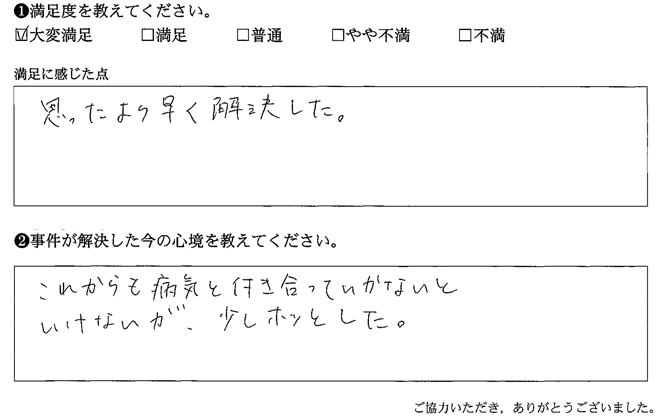 ❶満足度を教えてください。
☑大変満足 □満足 □普通 □やや不満 □不満
満足に感じた点
思ったより早く解決した。
❷事件が解決した今の心境を教えてください。
これからも病気と付き合っていかないと
いけないが、少しホッとした。
ご協力いただき,ありがとうございました。